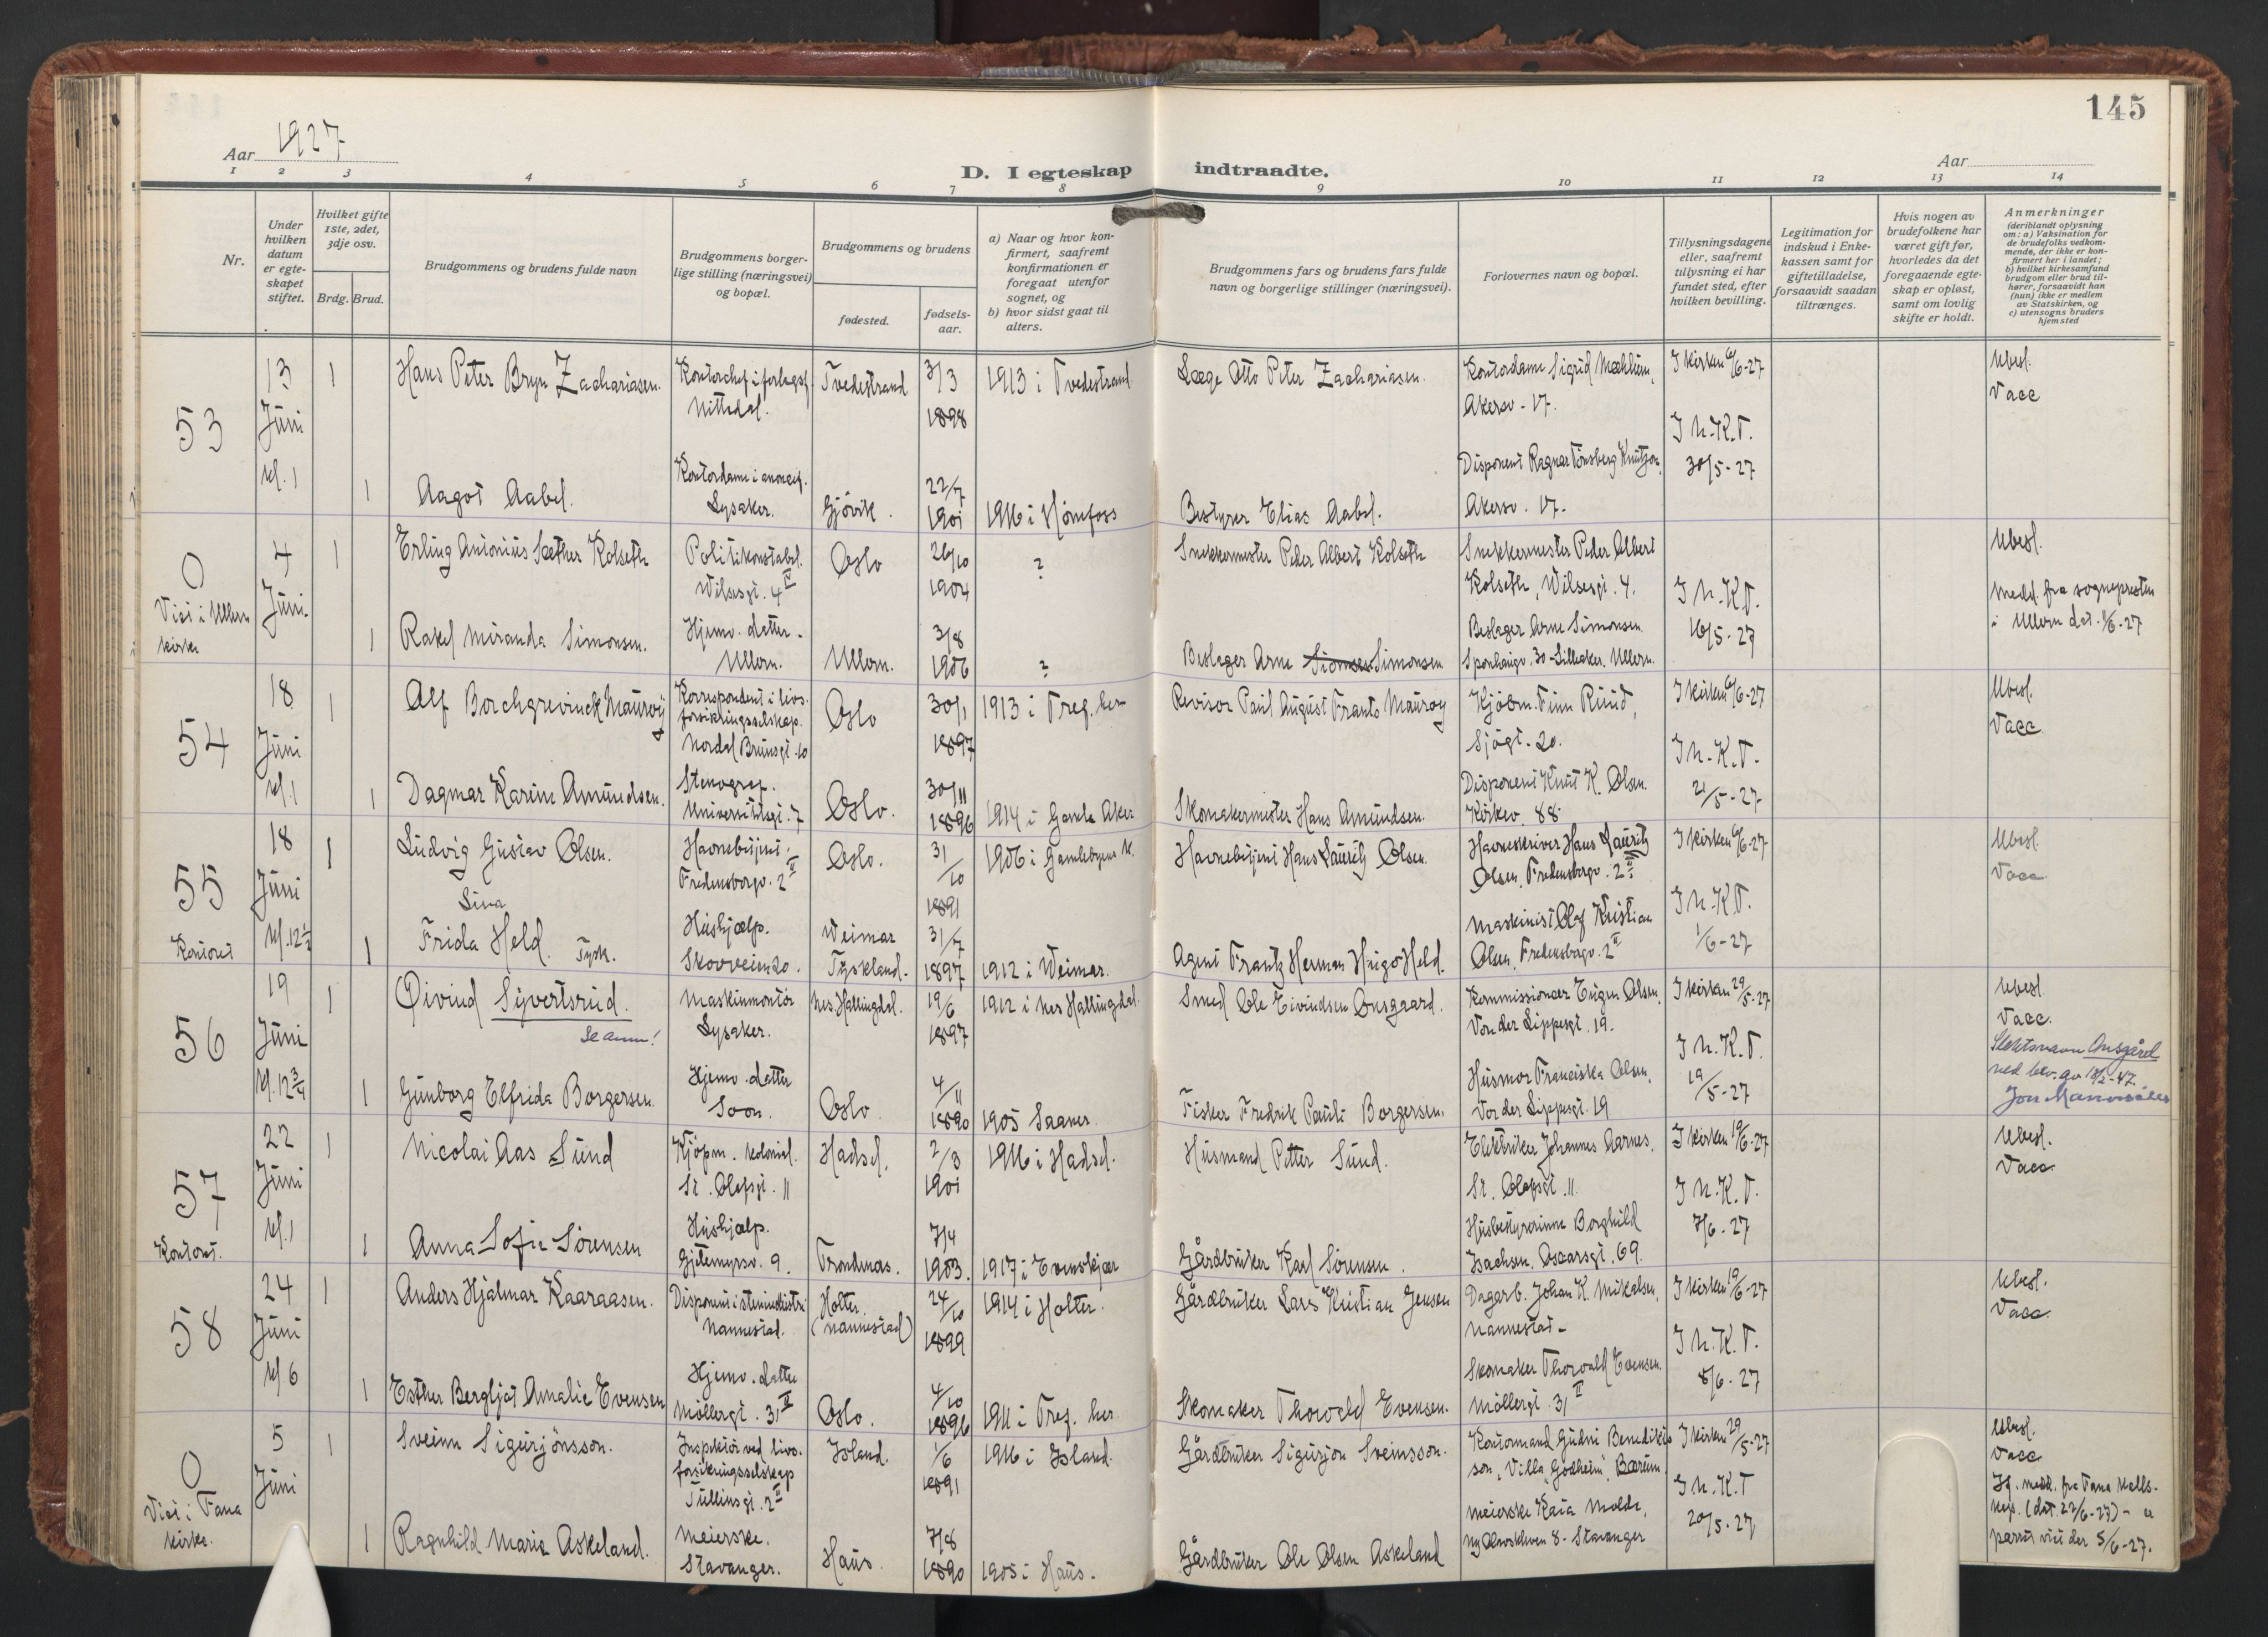 145
Aar 1927
Aar
D. I egteskap indtraadte.
1 2 3 4 5 6 7 8 9 10 11 12 13 14
Nr.
Under hvilken datum er egte-skapet stiftet.
Hvilket gifte 1ste, 2det, 3dje osv.
Brdg. Brud.
Brudgommens og brudens fulde navn
Brudgommens borger-lige stilling (næringsvei) og bopæl.
Brudgommens og brudens
fødested.
fødsels-aar.
a) Naar og hvor kon-firmert, saafremt konfirmationen er foregaat utenfor sognet, og
b) hvor sidst gaat til alters.
Brudgommens fars og brudens fars fulde navn og borgerlige stillinger (næringsvei).
Forlovernes navn og bopæl.
Tillysningsdagene eller, saafremt tillysning ei har fundet sted, efter hvilken bevilling.
Legitimation for indskud i Enke-kassen samt for giftetilladelse, forsaavidt saadan tiltrænges.
Hvis nogen av brudefolkene har været gift før, hvorledes da det foregaaende egte-skap er opløst, samt om lovlig skifte er holdt.
Anmerkninger
(deriblandt oplysning om: a) Vaksination for de brudefolks vedkom-mende, der ikke er kon-firmert her i landet;
b) hvilket kirkesamfund brudgom eller brud til-hører, forsaavidt han (hun) ikke er medlem av Statskirken, og
c) utensogns bruders hjemsted
53
13 Juni kl. 1
1 Hans Peter Bryn Zachariasen. Kontorchef i forlagsf. Nittedal. Tvedestrand 3/3 1898 1913 i Tvedestrand Læge Otto Peter Zachariasen. Kontordame Sigrid Mæhlum, Akersv. 17. I kirken 6/6-27 Ubesl. Vacc
1 Aagot Aabel. Kontordame i Lysaker. Gjövik. 22/7 1901 1916 i Hönefoss Bestyrer Elias Aabel. Disponent Ragnar Tönsberg Knutzon, Akersv. 17. I h.K.T. 30/5-27
0 Viet i Ullern kirke
4 Juni.
1 Erling Antonius Sæther Kolseth Politikonstabel. Wilsesgt. 4 IV Oslo 26/10 1904 ? Snekkermester Peder Albert Kolseth Snekkermester Peder Albert Kolseth, Wilsesgt. 4. I h.K.T. Ubesl.
1 Rakel Miranda Simonsen. Hjemv. datter. Ullern. Ullern. 3/8 1906 ? Beslager Arne Simonsen Beslager Arne Simonsen 30 Lilleaker. Ullern. 16/5-27 Medd. fra sognepresten i Ullern dat. 1/6-27
54
18 Juni kl. 1
1 Alf Borchgrevinck Mauroy Korrespondent i livs-forsikringsselskap. Nordal Brunsgt. 10 Oslo 30/1 1897 1913 i Tref. her Revisor Paul August Frants Mauroy Kjöbm. Finn Ruud, Sjögt. 20. I kirken 6/6-27 Ubesl. Vacc.
1 Dagmar Karine Amundsen. Stenograf. Universitetsgt. 7 Oslo. 30/11 1896 1914 i Gamle Aker Skomakermester Hans Amundsen. Disponent Knut K. Olsen. Kirkev. 88. I h.K.T. 21/5-27
55 Kontoret
18 Juni kl. 12 1/2
1 Ludvig Gustav Olsen. Havnebetjent. Fredensborgv. 2 II Oslo. 31/10 1891 1906 i Gamlebyens k. Havnebetjent Hans Lauritz Olsen. Havneskriver Hans Lauritz Olsen, Fredensborgv. 2 II I kirken 6/6-27 Ubesl. Vacc.
Lina
1 Frida Held. Tysk. Hushjælp. Skovveien 20. Weimar Tyskland. 31/7 1897 1912 i Weimar. Agent Frantz Herman Hugo Held. Maskinist Olaf Kristian Olsen, Fredensborgv. 2 II I h.K.T. 1/6-27
56
19 Juni kl. 12 3/4
1 Øivind Syvertsrud. Maskinmontör Lysaker. Nes. Hallingdal. 19/6 1897 1912 i Nes Hallingdal Smed Ole Eivindsen Ansgaard. Kommissionær Eugen Olsen, Von der Lippesgt. 19. I kirken 29/5-27 Ubesl Vacc.
Se anm!
Slektsnavn Ansgård ved bev. av 18/2-47.
1 Gunborg Elfrida Borgersen. Hjemv. datter Soon. Oslo. 4/11 1890 1905 Saaner. Fisker Fredrik Pauli Borgersen. Husmor Franciska Olsen, Von der Lippesgt. 19 I h.K.T. 19/5-27
57 Kontoret.
22 Juni kl. 1
1 Nicolai Aas Sund Kjöpm. kolonial. St. Olafsgt. 11 Hadsel. 2/3 1901 1916 i Hadsel. Husmand Petter Sund. Elektriker Johannes Aarnes, St. Olafsgt. 11. I kirken 19/6-27 Ubesl. Vacc.
1 Anna Sofie Sörensen Hushjælp. Gjetemyrsv. 9. Trondenes. 7/4 1903. 1917 i Evenskjær Gårdbruker Karl Sörensen. Husbestyrerinne Borghild Isachsen, Oscarsgt. 69. I h.K.T. 7/6-27
58
24 Juni kl 6
1 Anders Hjalmar Kaaraasen. Disponent i stenindustri Nannestad. Holter. (Nannestad) 24/10 1899 1914 i Holter. Gårdbruker Lars Kristian Jensen Dagarb. Johan K. Mikalsen, Nannestad. I kirken 19/6-27 Ubesl. Vacc.
1 Esther Bergljot Amalie Evensen Hjemv. datter Möllergt. 31 II Oslo. 4/10 1896 1911 i Tref. her Skomaker Thorvald Evensen. Skomaker Thorvald Evensen. Möllergt. 31 II I h.K.T. 8/6-27
0 Viet i Fana kirke.
5 Juni
1 Sveinn Sigurjónsson. Inspektör ved livs-forsikringsselskap Tullinsgt. 2 II Island. 1/6 1891 1916 i Island. Gårdbruker Sigurjon Sveinsson. Kontormand Gudni Benediktsson, Villa "Godheim", Bærum I kirken 29/5-27 Ubesl. Vacc
1 Ragnhild Marie Askeland. Meierske. Stavanger. Haus. 7/8 1890 1905 i Haus. Gårdbruker Ole Olsen Askeland Meierske Kaia Molde, 8 - Stavanger I h.K.T 20/5-27 If. medd. fra Fana (dat. 22/6-27) - er parret viet der 5/6-27.